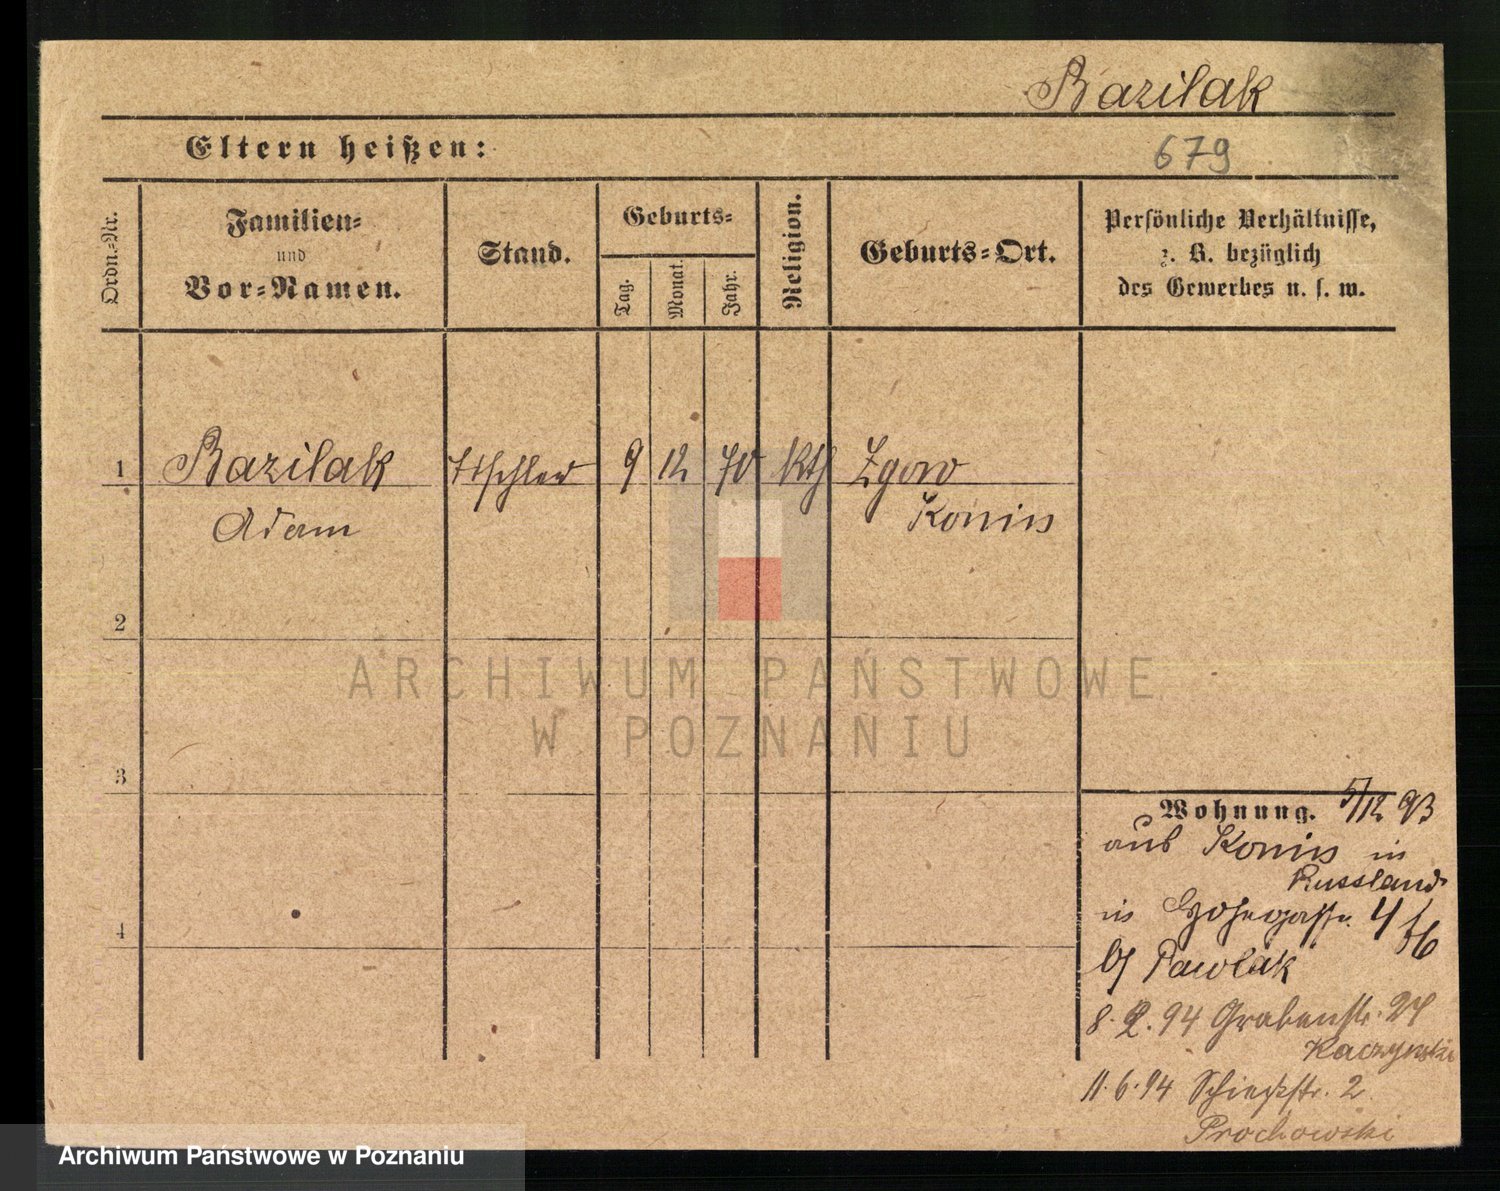 Bazilak
Eltern heißen:
679
Ordn.-Nr.
Familien-
und
Vor-Namen.
Stand.
Geburts-
Tag.
Monat.
Jahr.
Religion.
Geburts-Ort.
Persönliche Verhältnisse,
z. B. bezüglich
des Gewerbes u. s. w.
1 Bazilak 9 12 70 Kth Zgow
Adam Konin
2
ARCHIWUM PAŃSTWOWE
W POZNANIU
3
Wohnung. 5/12 93
aus Konin in
Russland
in 4
b/ Pawlak
8. 2. 94 Grabenstr. 24
Kaczynski
4
11. 6. 94 2
Prochowski
Archiwum Państwowe w Poznaniu